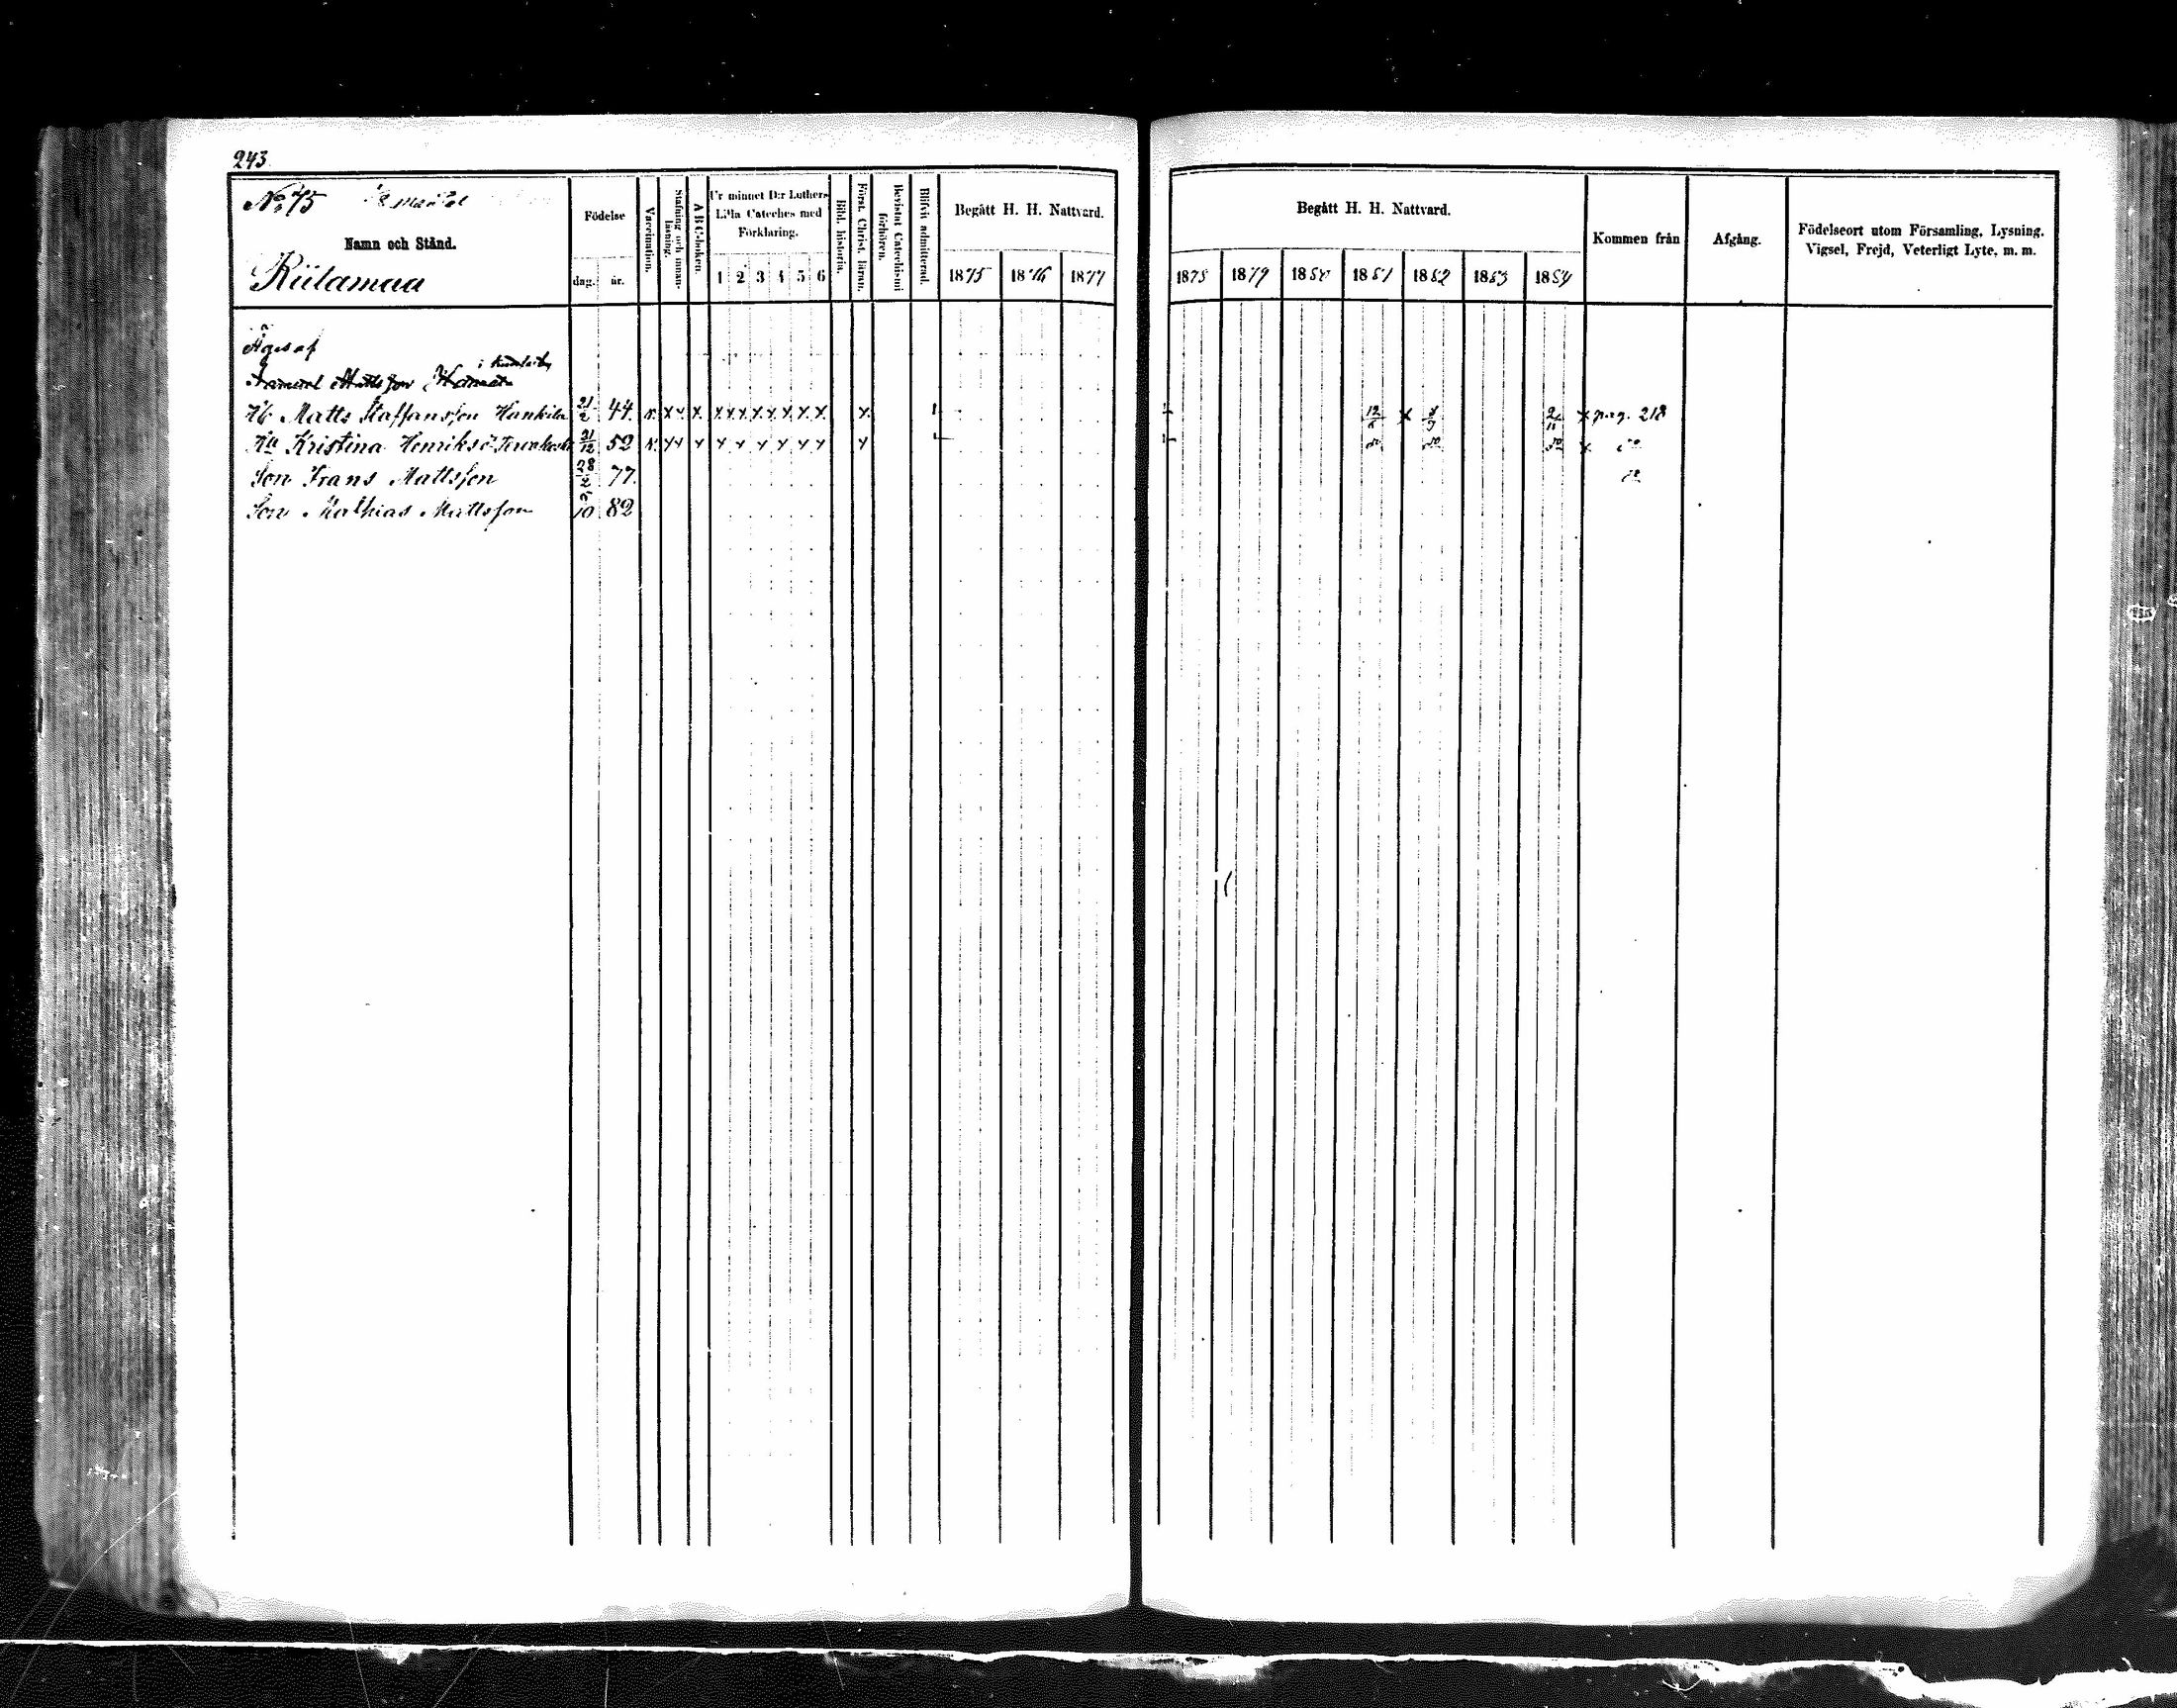 243
No 75
Namn och Stånd.
Riitamaa
Födelse
dag. år.
Vaccination.
Stafning och innanläsning.
A B C-boken.
Ur minnet D:r Luthers Lilla Cateches med Förklaring.
1 2 3 4 5 6
Bibl. historia.
Först. Christ. läran.
Bevistat Catechismi förhören.
Blifvit admitterad.
Begått H. H. Nattvard.
1875 1876 1877
Begått H. H. Nattvard.
1878 1879 1880 1881 1882 1883 1884
Kommen från
Afgång.
Födelseort utom Församling, Lysning, Vigsel, Frejd, Veterligt Lyte, m. m.
Äges af
Matts Staffansson Hankila 21/2 44. x x x x x x x x x x x x 12/6 x x pag. 218
Hu Kristina Henriksd 21/12 52 x x x x x x x x x x x do do do x do
Son Frans Mattsson 28/2 77. do
Son Mathias Mattsson 10 82